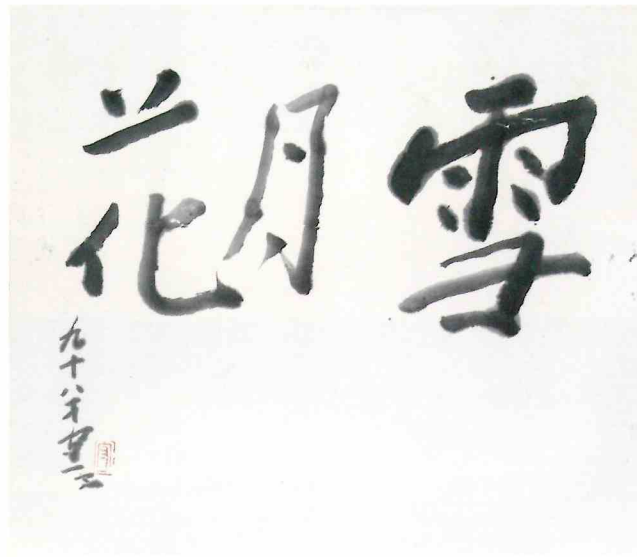 雪月花
九十八才